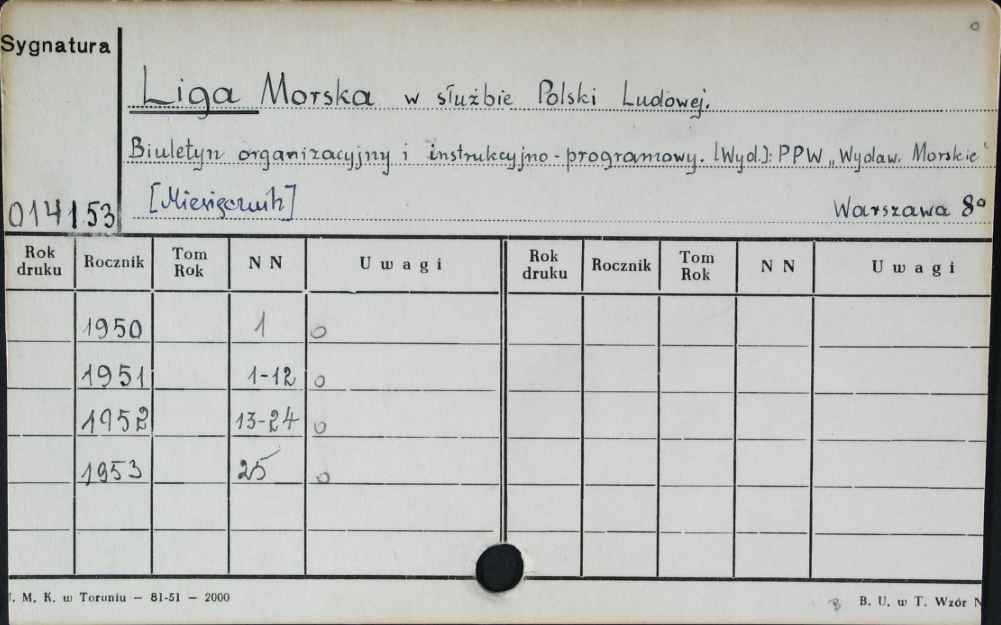 Sygnatura
Liga Morska w służbie Polski Ludowej.
Biuletyn organizacyjny i instrukcyjno-programowy. [Wyd.]: PPW „Wydaw. Morskie"
[Miesięcznik]
014153
Warszawa 8°
Rok druku Rocznik Tom Rok N N Uwagi Rok druku Rocznik Tom Rok N N Uwagi
1950 1 o
1951 1-12 o
1952 13-24 o
1953 25 o
. M. K. w Toruniu — 81-51 — 2000
B. U. w T. Wzór N